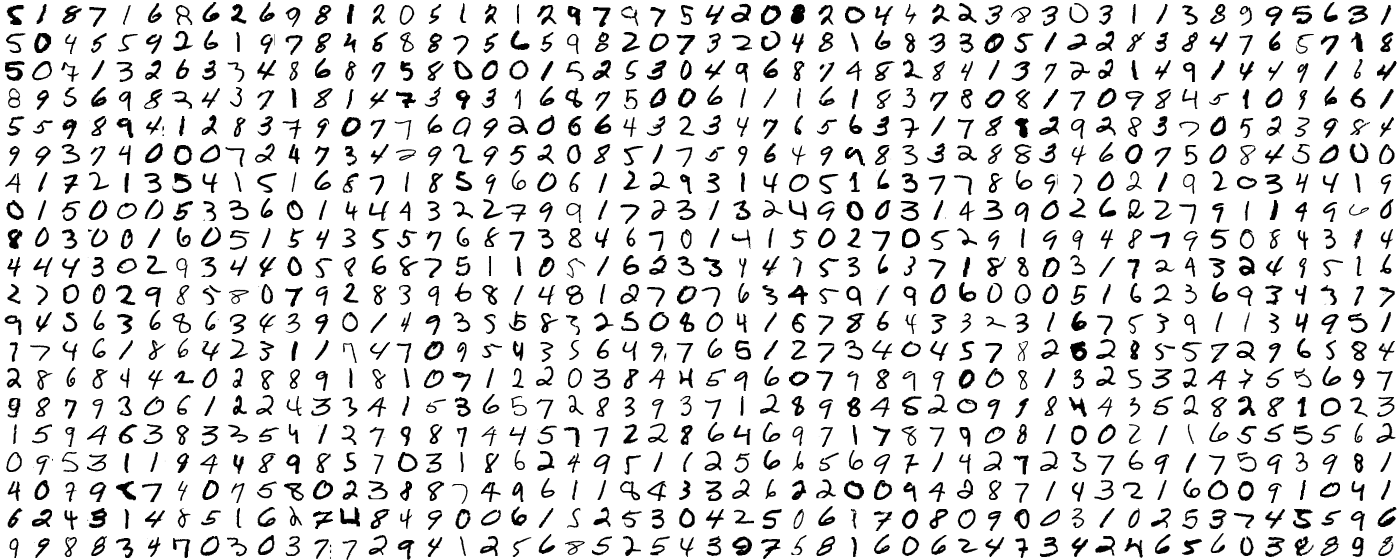 5 1 8 7 1 6 8 6 2 6 9 8 1 2 0 5 1 2 1 2 9 7 9 7 5 4 2 0 8 2 0 4 4 2 2 3 8 3 0 3 1 1 3 8 9 9 5 6 3 1
5 0 4 5 5 9 2 6 1 9 7 8 4 6 8 8 7 5 6 5 9 8 2 0 7 3 2 0 4 8 1 6 8 3 3 0 5 1 2 2 8 3 8 4 7 6 5 7 1 8
5 0 7 1 3 2 6 3 3 4 8 6 8 7 5 8 0 0 0 1 5 2 5 3 0 4 9 6 8 7 4 8 2 8 4 1 3 7 2 2 1 4 9 1 4 4 9 1 6 4
8 9 5 6 9 8 2 4 3 7 1 8 1 4 7 3 9 3 1 6 8 7 5 0 0 6 1 1 1 6 8 3 7 8 0 8 1 7 0 9 8 4 5 1 0 9 6 6 1
5 5 9 8 9 4 1 2 8 3 7 9 0 7 7 6 0 9 2 0 6 6 4 3 2 3 4 7 6 5 6 3 7 1 7 8 8 2 9 2 8 3 7 0 5 2 3 9 8 4
9 9 3 7 4 0 0 0 7 2 4 7 3 4 7 9 2 9 5 2 0 8 5 1 7 5 9 6 4 9 9 8 3 3 2 8 8 3 4 6 0 7 5 0 8 4 5 0 0 0
4 1 7 2 1 3 5 4 1 5 1 6 8 7 1 8 5 9 6 0 6 1 2 2 9 3 1 4 0 5 1 6 3 7 7 8 6 9 7 0 2 1 9 2 0 3 4 4 1 9
0 1 5 0 0 0 5 3 3 6 0 1 4 4 4 3 2 2 7 9 9 1 7 2 3 1 3 2 4 9 0 0 3 1 4 3 9 0 2 6 8 2 7 9 1 1 4 9 6 0
8 0 3 0 0 1 6 0 5 1 5 4 3 5 5 7 6 8 7 3 8 4 6 7 0 1 4 1 5 0 2 7 0 5 2 9 1 9 9 4 8 7 9 5 0 8 4 3 1 4
4 4 4 3 0 2 9 3 4 4 0 5 8 6 8 7 5 1 1 0 5 1 6 2 3 3 4 4 7 5 3 6 3 7 1 8 8 0 3 1 7 2 4 3 2 4 9 5 1 6
2 7 0 0 2 9 8 5 8 0 7 9 2 8 3 9 6 8 1 4 8 1 2 7 0 7 6 3 4 5 9 1 9 0 6 0 0 0 5 1 6 2 3 6 9 3 4 3 7 7
9 4 5 6 3 6 8 6 3 4 3 9 0 1 4 9 3 5 5 8 3 2 5 0 8 0 4 1 6 7 8 6 4 3 3 2 3 1 6 7 5 3 9 1 1 3 4 9 5 1
7 7 4 6 1 8 6 4 2 3 1 1 7 4 7 0 9 5 4 3 5 6 4 9 7 6 5 1 2 7 3 4 0 4 5 7 8 2 6 2 8 5 5 7 2 9 6 5 8 4
2 8 6 8 4 4 2 0 2 8 8 9 1 8 1 0 7 1 2 2 0 3 8 4 4 4 5 9 6 0 7 9 8 9 9 0 0 8 1 3 2 5 3 2 4 7 5 5 6 9 7
9 8 7 9 3 0 6 1 2 2 4 3 3 4 1 5 3 6 5 7 2 8 3 9 3 7 1 2 8 9 8 4 5 2 0 9 9 8 4 4 3 5 2 8 2 8 1 0 2 3
1 5 9 4 6 3 8 3 3 5 4 1 2 7 9 8 7 4 4 5 7 7 2 2 8 6 4 6 9 7 1 7 8 7 9 0 8 1 0 0 2 1 1 6 5 5 5 5 6 2
0 9 5 3 1 1 9 4 4 8 9 8 5 7 0 3 1 8 6 2 4 9 5 1 1 2 5 6 6 5 6 9 7 1 4 2 7 2 3 7 6 9 1 7 5 9 3 9 8 1
4 0 7 9 5 7 4 0 7 5 8 0 2 3 8 8 7 4 9 6 1 1 8 4 3 3 2 6 2 2 0 0 9 4 2 8 7 1 4 3 2 1 6 0 0 9 1 0 4 1
6 2 4 3 1 4 8 5 1 6 2 7 4 8 4 9 0 0 6 1 5 2 5 3 0 4 2 5 0 6 1 7 0 8 0 9 0 0 3 1 0 2 5 3 7 4 5 5 9 6
9 9 8 8 3 4 7 0 3 0 3 7 7 2 9 4 1 2 5 6 8 5 2 5 4 3 9 7 5 8 1 6 0 6 2 4 7 3 4 2 4 6 5 6 0 3 8 8 9 8